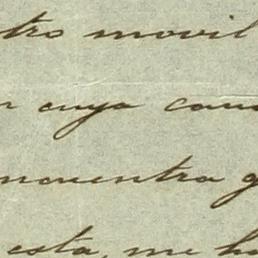 tro movil
n cuya cau
ncuentra g
esta, me ha